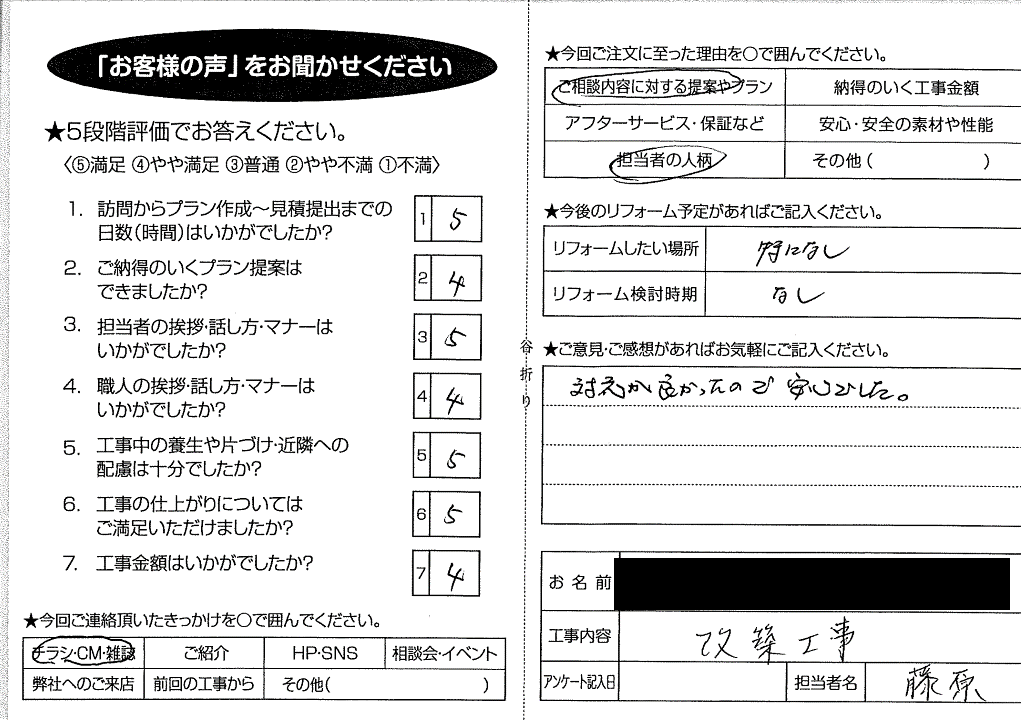 「お客様の声」をお聞かせください
★5段階評価でお答えください。
〈⑤満足 ④やや満足 ③普通 ②やや不満 ①不満〉
1. 訪問からプラン作成～見積提出までの
日数(時間)はいかがでしたか?
1 5
2. ご納得のいくプラン提案は
できましたか?
2 4
3. 担当者の挨拶・話し方・マナーは
いかがでしたか?
3 5
4. 職人の挨拶・話し方・マナーは
いかがでしたか?
4 4
5. 工事中の養生や片づけ・近隣への
配慮は十分でしたか?
5 5
6. 工事の仕上がりについては
ご満足いただけましたか?
6 5
7. 工事金額はいかがでしたか?
7 4
★今回ご連絡頂いたきっかけを○で囲んでください。
チラシ・CM・雑誌 ご紹介 HP・SNS 相談会・イベント
弊社へのご来店 前回の工事から その他( )
谷折り
★今回ご注文に至った理由を○で囲んでください。
ご相談内容に対する提案やプラン 納得のいく工事金額
アフターサービス・保証など 安心・安全の素材や性能
担当者の人柄 その他( )
★今後のリフォーム予定があればご記入ください。
リフォームしたい場所 特になし
リフォーム検討時期 なし
★ご意見・ご感想があればお気軽にご記入ください。
対応が良かったので安心でした。
お名前
工事内容 改築工事
アンケート記入日 担当者名 藤原